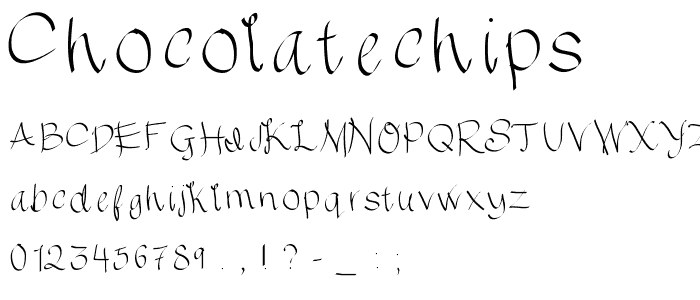 Chocolatechips
ABCDEFGHIJKLMNOPQRSTUVWXYZ
abcdefghijklmnopqrstuvwxyz
0123456789 . , ! ? - _ : ;